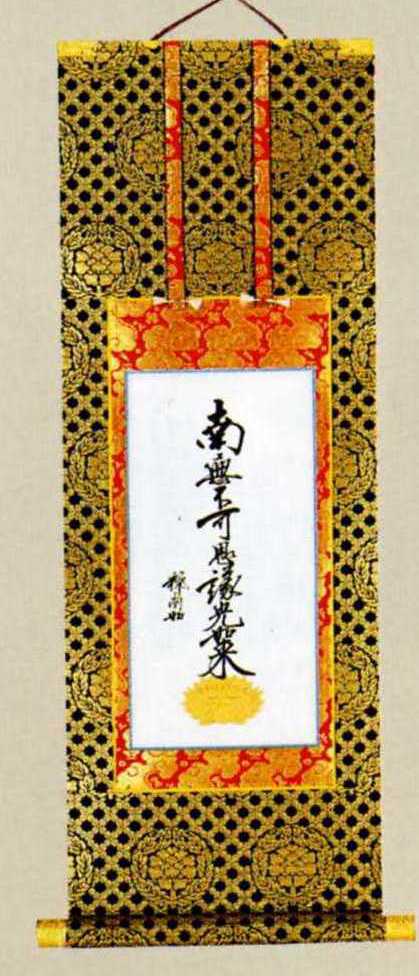 南無不可思議光如来
釋蘭如